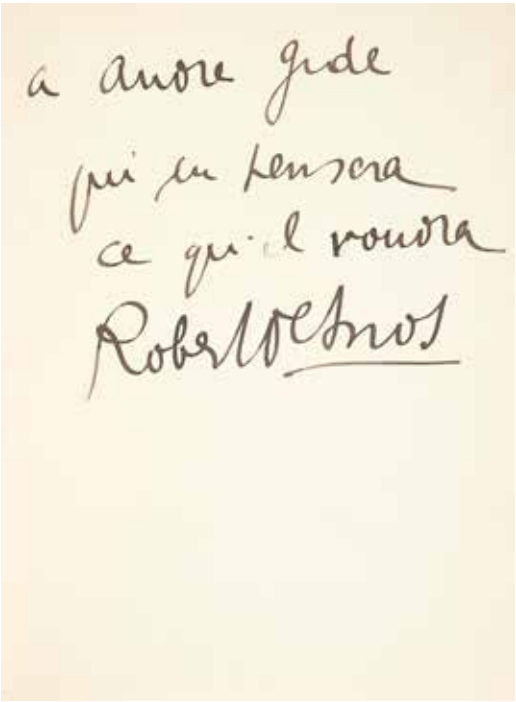 a André Gide
qui en pensera
ce qu'il voudra
Robert Desnos